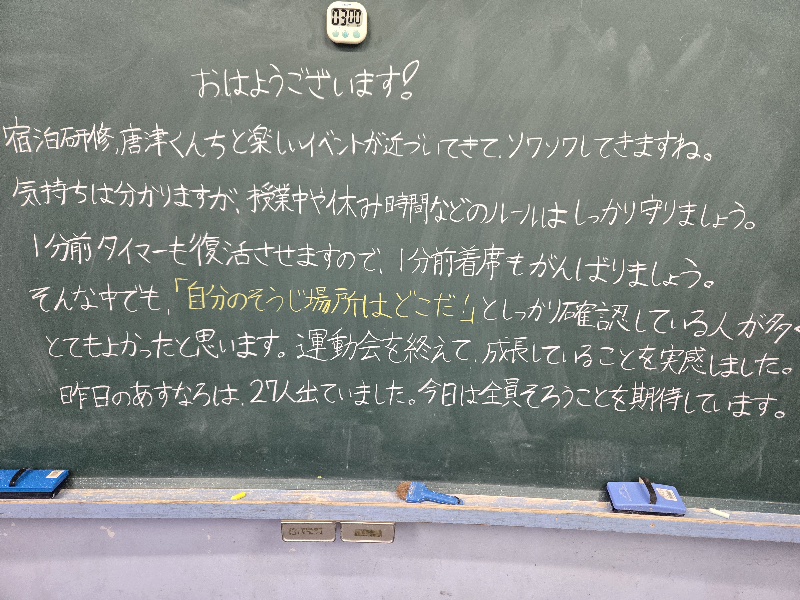 13:00
おはようございます!
宿泊研修,唐津くんちと楽しいイベントが近づいてきて、ソワソワしてきますね。
気持ちは分かりますが、授業中や休み時間などのルールはしっかり守りましょう。
1分前タイマーも復活させますので、1分前着席もがんばりましょう。
そんな中でも、「自分のそうじ場所はどこだ!」としっかり確認している人が多く
とてもよかったと思います。運動会を終えて、成長していることを実感しました。
昨日のあすなろは、27人出ていました。今日は全員そろうことを期待しています。